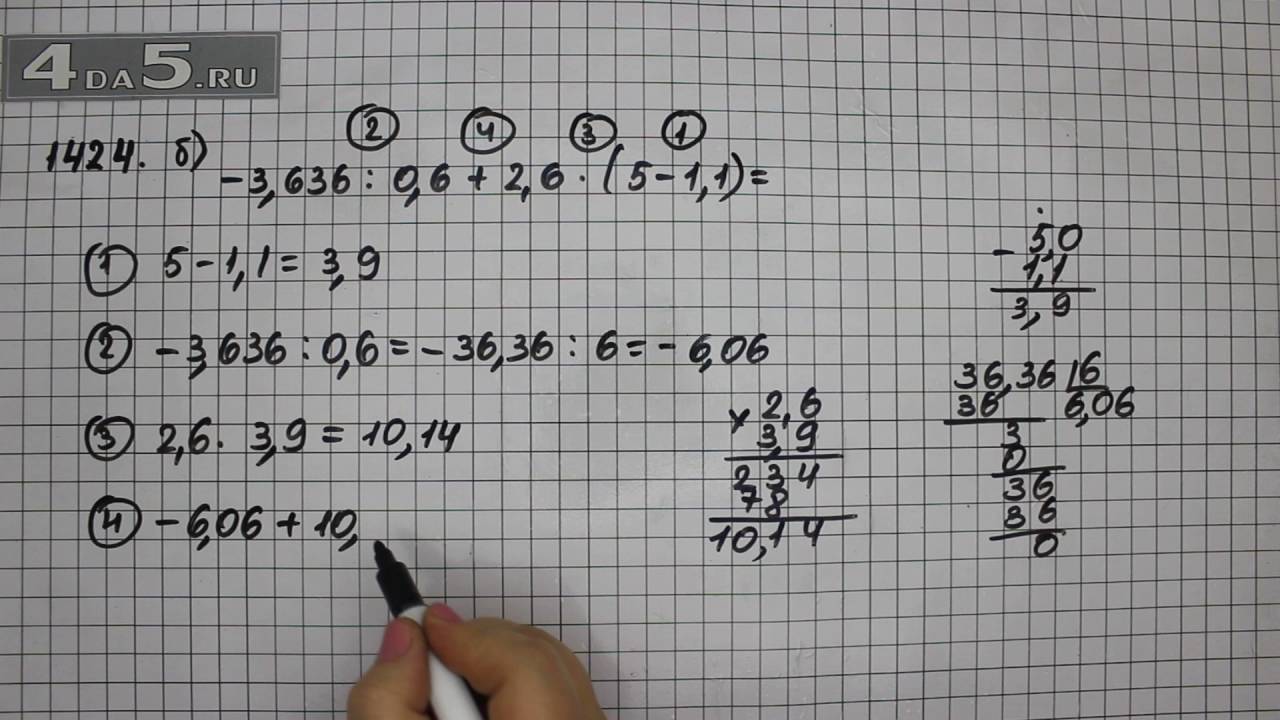 4DA5.RU
② ④ ③ ①
1424. б) -3,636 : 0,6 + 2,6 · (5 - 1,1) =
① 5 - 1,1 = 3,9
② -3,636 : 0,6 = -36,36 : 6 = -6,06
③ 2,6 · 3,9 = 10,14
④ -6,06 + 10,
- 5,0
1,1
3,9
× 2,6
3,9
234
78
10,14
36,36 | 6
36 6,06
3
0
36
36
0